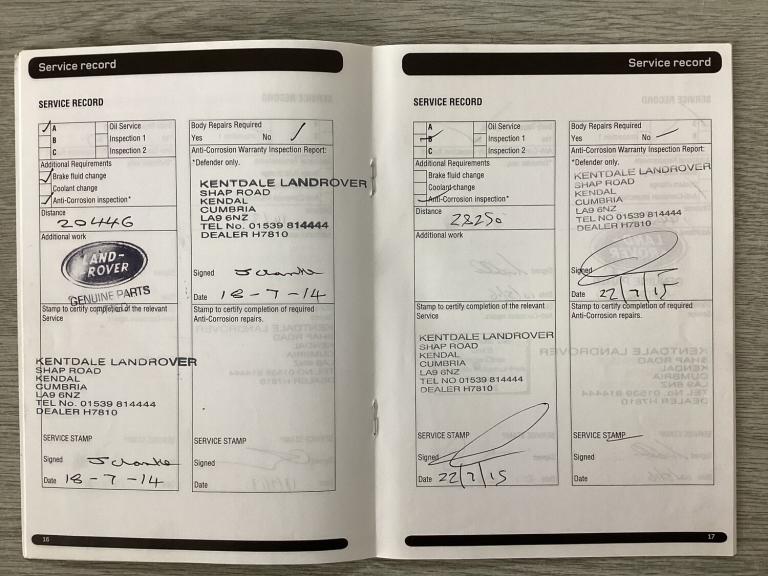 Service record
SERVICE RECORD
A
B
C
Oil Service
Inspection 1
Inspection 2
Additional Requirements
Brake fluid change
Coolant change
Anti-Corrosion inspection*
Distance
20446
Additional work
LAND-
ROVER
GENUINE PARTS
Stamp to certify completion of the relevant
Service
KENTDALE LANDROVER
SHAP ROAD
KENDAL
CUMBRIA
LA9 6NZ
TEL No. 01539 814444
DEALER H7810
SERVICE STAMP
Signed
Date 18-7-14
Body Repairs Required
Yes No
Anti-Corrosion Warranty Inspection Report:
*Defender only.
KENTDALE LANDROVER
SHAP ROAD
KENDAL
CUMBRIA
LA9 6NZ
TEL No. 01539 814444
DEALER H7810
Signed
Date 18-7-14
Stamp to certify completion of required
Anti-Corrosion repairs.
SERVICE STAMP
Signed
Date
16
Service record
SERVICE RECORD
A
B
C
Oil Service
Inspection 1
Inspection 2
Additional Requirements
Brake fluid change
Coolant change
Anti-Corrosion inspection*
Distance
28250
Additional work
Stamp to certify completion of the relevant
Service
KENTDALE LANDROVER
SHAP ROAD
KENDAL
CUMBRIA
LA9 6NZ
TEL NO 01539 814444
DEALER H7810
SERVICE STAMP
Signed
Date 22/7/15
Body Repairs Required
Yes No
Anti-Corrosion Warranty Inspection Report:
*Defender only.
KENTDALE LANDROVER
SHAP ROAD
KENDAL
CUMBRIA
LA9 6NZ
TEL NO 01539 814444
DEALER H7810
Signed
Date 22/7/15
Stamp to certify completion of required
Anti-Corrosion repairs.
SERVICE STAMP
Signed
Date
17